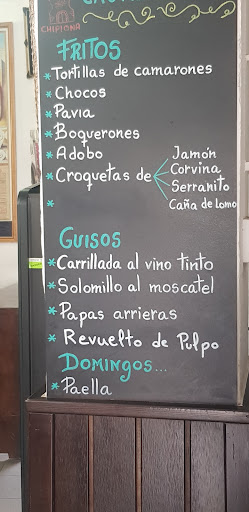 CHIPIONA
FRITOS
* Tortillas de camarones
* Chocos
* Pavia
* Boquerones
* Adobo
* Croquetas de
Jamón
Corvina
Serranito
Caña de Lomo
*
GUISOS
* Carrillada al vino tinto
* Solomillo al moscatel
* Papas arrieras
* Revuelto de Pulpo
DOMINGOS...
* Paella